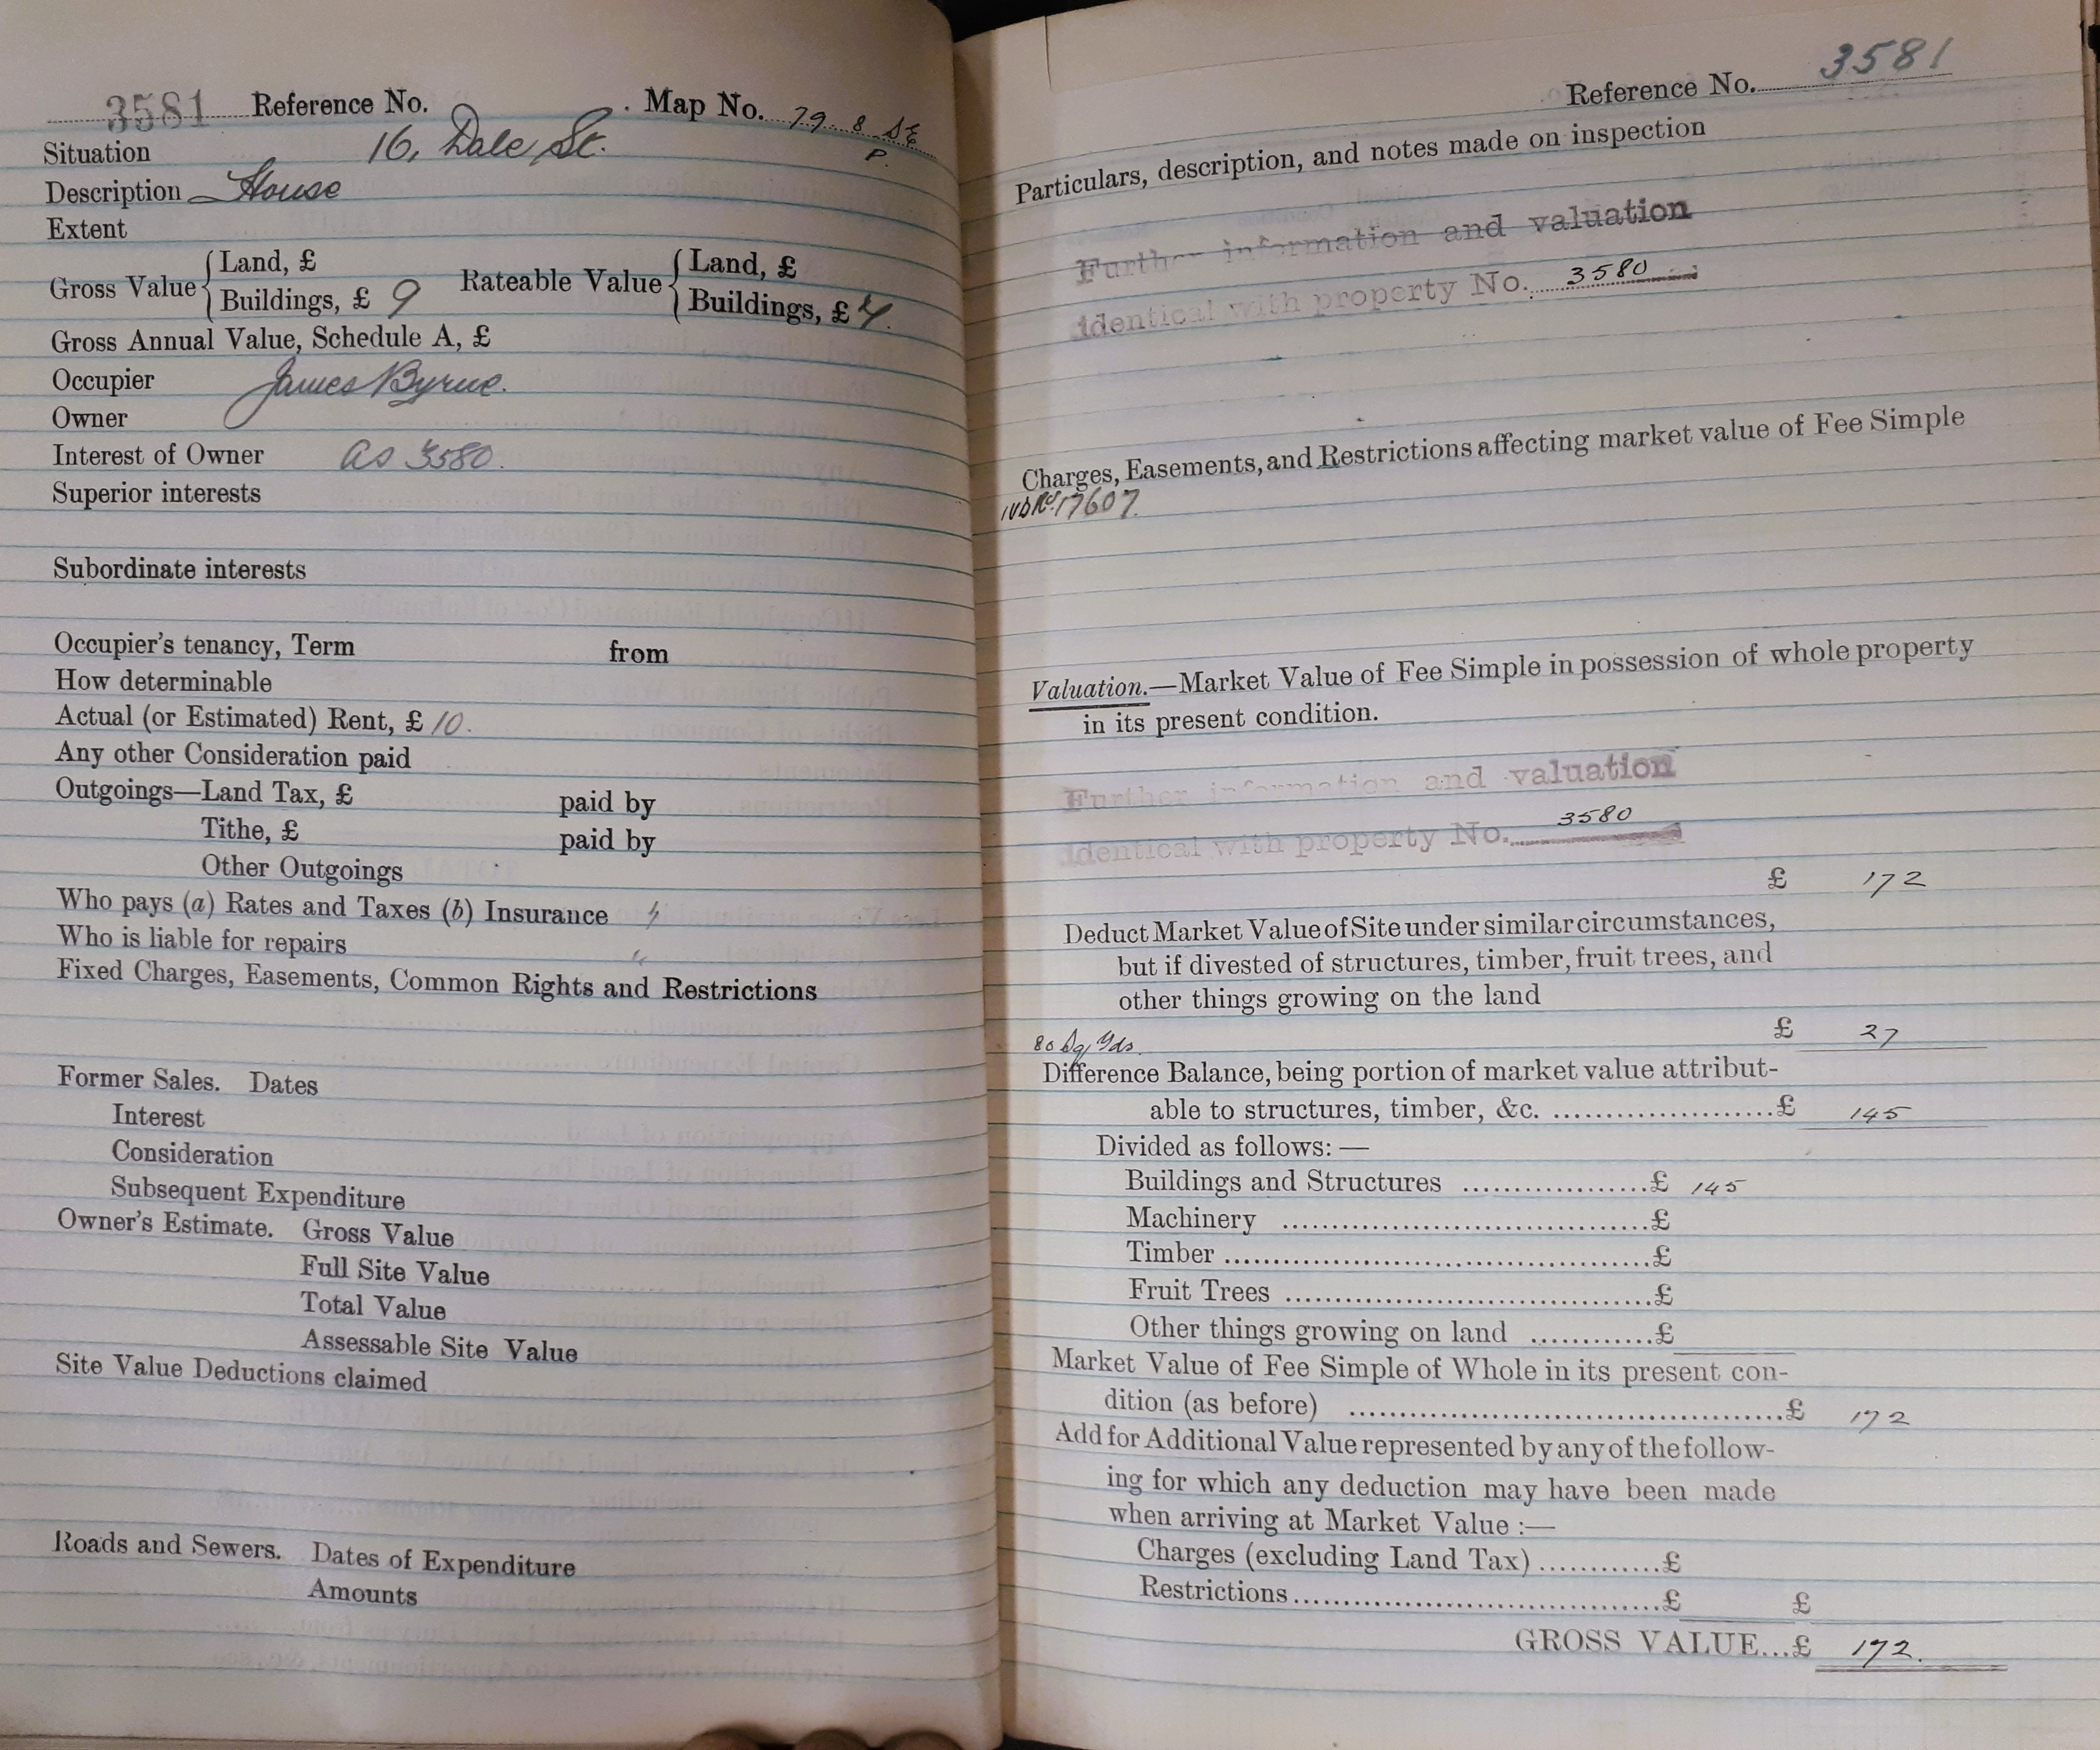 3581 Reference No. Map No. 79. 8 SE
P.
Situation 16, Dale St.
Description House
Extent
Gross Value { Land, £ Rateable Value { Land, £
Buildings, £ 9 Buildings, £
Gross Annual Value, Schedule A, £
Occupier James Byrne.
Owner
Interest of Owner as 3580.
Superior interests
Subordinate interests
Occupier's tenancy, Term from
How determinable
Actual (or Estimated) Rent, £ 10.
Any other Consideration paid
Outgoings—Land Tax, £ paid by
Tithe, £ paid by
Other Outgoings
Who pays (a) Rates and Taxes (b) Insurance
Who is liable for repairs "
Fixed Charges, Easements, Common Rights and Restrictions
Former Sales. Dates
Interest
Consideration
Subsequent Expenditure
Owner's Estimate. Gross Value
Full Site Value
Total Value
Assessable Site Value
Site Value Deductions claimed
Roads and Sewers. Dates of Expenditure
Amounts
Reference No. 3581
Particulars, description, and notes made on inspection
Further information and valuation
identical with property No. 3580
Charges, Easements, and Restrictions affecting market value of Fee Simple
17607.
Valuation.—Market Value of Fee Simple in possession of whole property
in its present condition.
Further information and valuation
identical with property No. 3580
£ 172
Deduct Market Value of Site under similar circumstances,
but if divested of structures, timber, fruit trees, and
other things growing on the land
80 Sq Yds. £ 27
Difference Balance, being portion of market value attribut-
able to structures, timber, &c. ....................£ 145
Divided as follows: —
Buildings and Structures ..................£ 145
Machinery ....................................£
Timber ..........................................£
Fruit Trees ....................................£
Other things growing on land ............£
Market Value of Fee Simple of Whole in its present con-
dition (as before) ...........................................£ 172
Add for Additional Value represented by any of the follow-
ing for which any deduction may have been made
when arriving at Market Value :—
Charges (excluding Land Tax) ............£
Restrictions ....................................£ £
GROSS VALUE...£ 172.